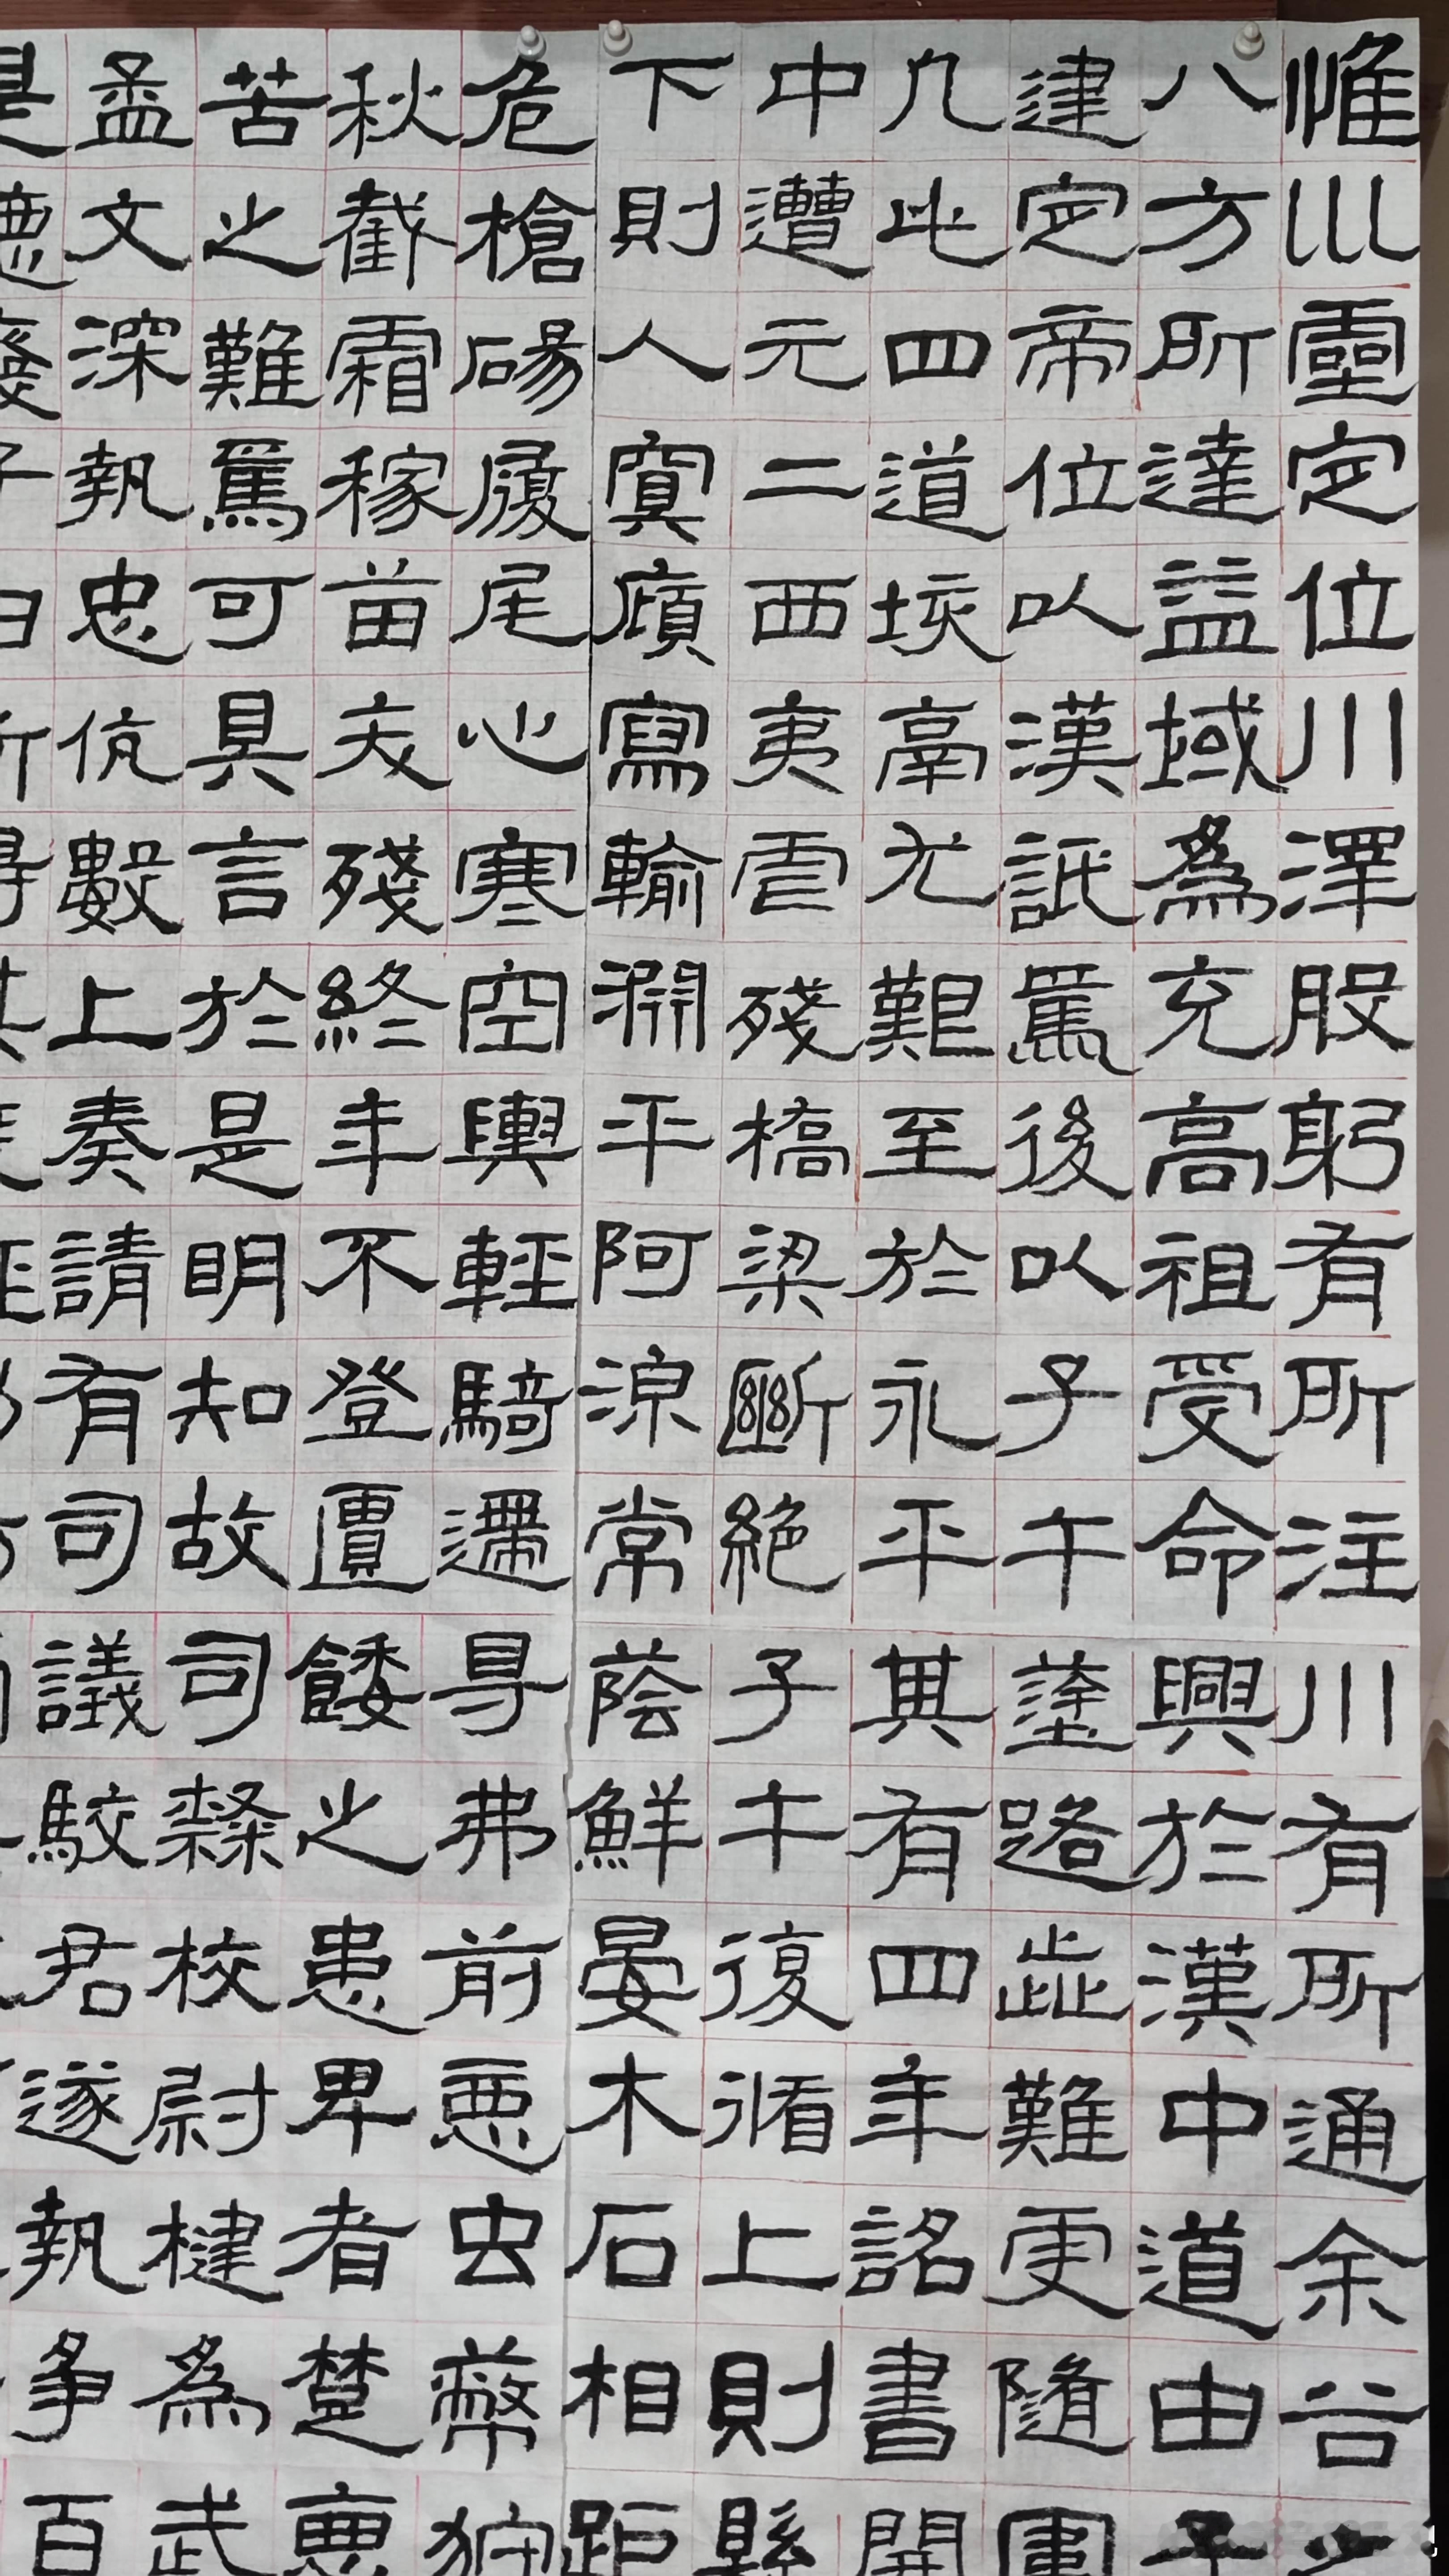 惟巛靈定位川澤股躬有所注川有所通余谷之
八方所達益域為充高祖受命興於漢中道由子
建定帝位以漢詆焉後以子午塗路歰難更隨圍
凡此四道垓鬲尤艱至於永平其有四年詔書開
中遭元二西夷虐殘橋梁斷絕子午復循上則縣
下則人寘廎寫輸淵平阿涼常蔭鮮晏木石相距
危槍碭履尾心寒空輿輕騎遰㝵弗前惡虫蔽狩
秋截霜稼苗夭殘終年不登匱餧之患卑者楚惡
苦之難焉可具言於是明知故司隸校尉楗為武
孟文深執忠伉數上奏請有司議駮君遂執爭百